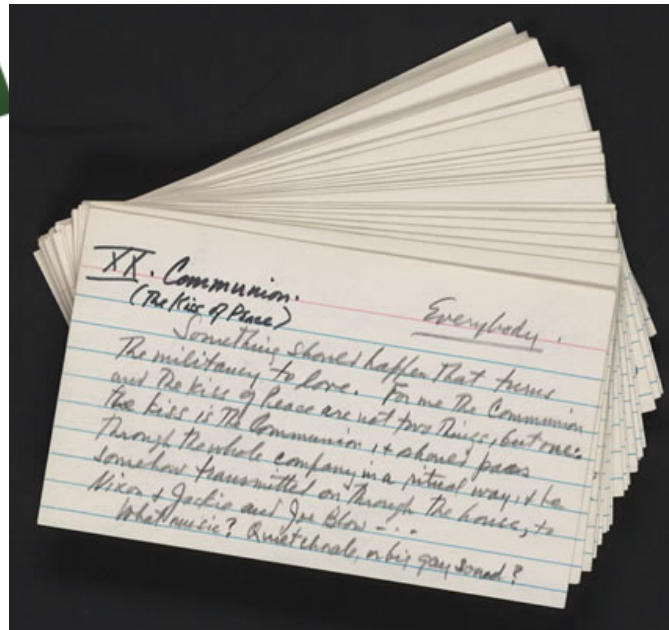 XX. Communion.
(The Kiss of Peace)
Everybody.
Something should happen that turns
the militancy to love. For me the Communion
and the kiss of Peace are not two things, but one:
the kiss is the Communion, & should pass
through the whole company in a ritual way, & be
somehow transmitted on through the house, to
Nixon & Jackie and Joe Blow - ..
What music? Quiet chorale, or big gay sound?